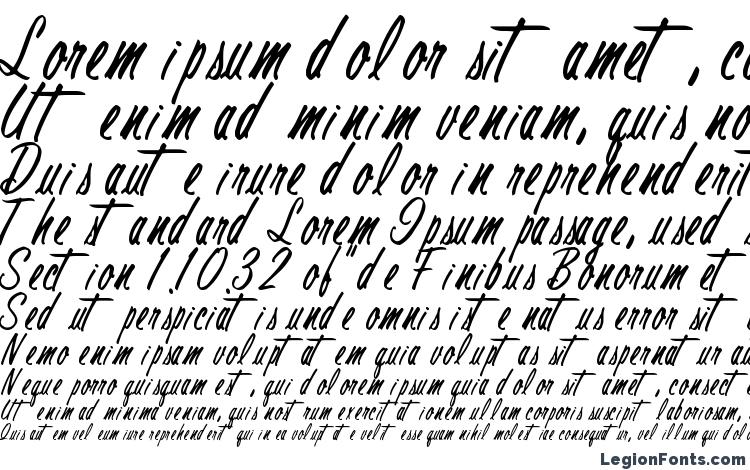 Lorem ipsum dolor sit amet, co
Ut enim ad minim veniam, quis no
Duis aute irure dolor in reprehenderit
The standard Lorem Ipsum passage, used s
Section 1.10.32 of "de Finibus Bonorum et
Sed ut perspiciatis unde omnis iste natus error sit
Nemo enim ipsam voluptatem quia voluptas sit aspernatur aut
Neque porro quisquam est, qui dolorem ipsum quia dolor sit amet, consect
Ut enim ad minima veniam, quis nostrum exercitationem ullam corporis suscipit laboriosam,
Quis autem vel eum iure reprehenderit qui in ea voluptate velit esse quam nihil molestiae consequatur, vel illum qui dol
LegionFonts.com